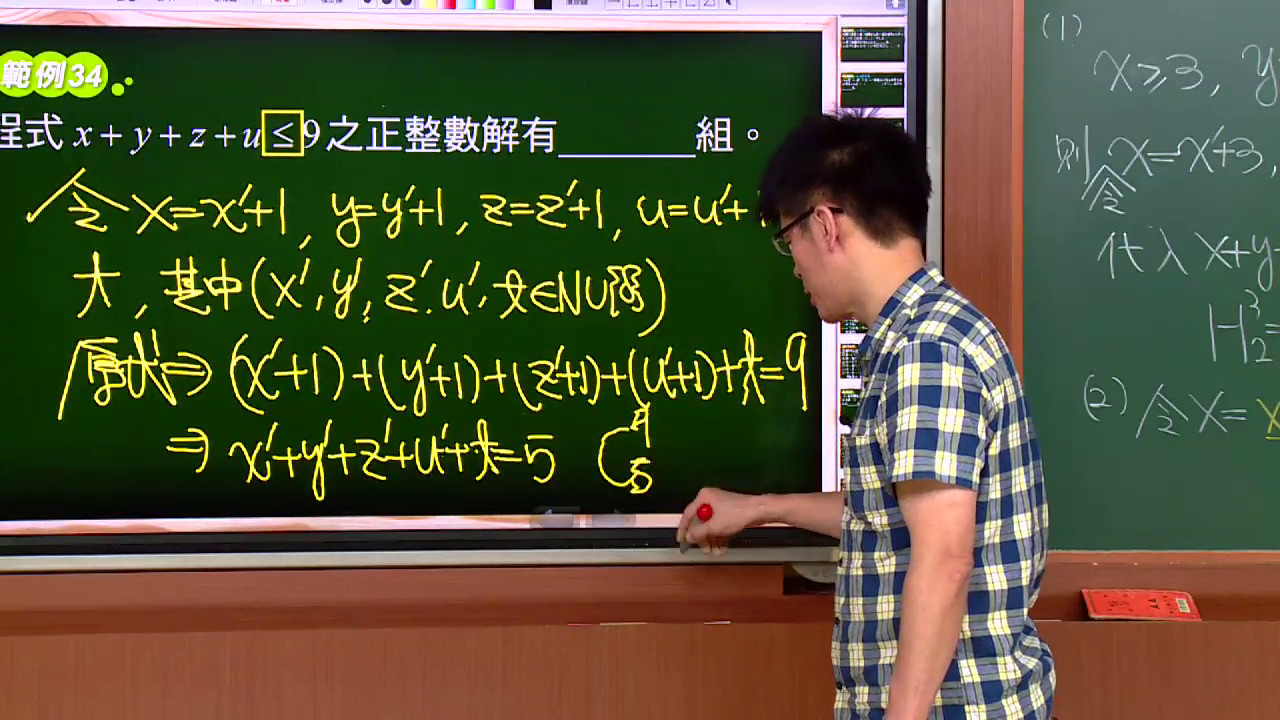 範例34
程式 x + y + z + u ≤ 9 之正整數解有______組。
令 x=x'+1, y=y'+1, z=z'+1, u=u'+
大, 其中(x', y', z', u', t∈N∪{0})
原式⇒ (x'+1)+(y'+1)+(z'+1)+(u'+1)+t=9
⇒ x'+y'+z'+u'+t=5 C⁹₅
(1)
x≥3, y
則令 x=x'+3,
代入 x+y
H³₂=
(2) 令 x= x